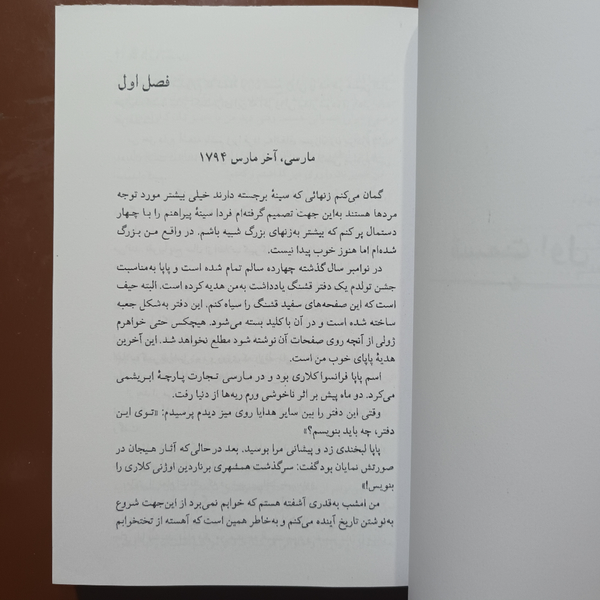 فصل اول
مارسی، آخر مارس ۱۷۹۴
گمان می‌کنم زنهائی که سینهٔ برجسته دارند خیلی بیشتر مورد توجه
مردها هستند به‌این جهت تصمیم گرفته‌ام فردا سینهٔ پیراهنم را با چهار
دستمال پر کنم که بیشتر به‌زنهای بزرگ شبیه باشم. در واقع من بزرگ
شده‌ام اما هنوز خوب پیدا نیست.
در نوامبر سال گذشته چهارده سالم تمام شده است و پاپا به‌مناسبت
جشن تولدم یک دفتر قشنگ یادداشت به‌من هدیه کرده است. البته حیف
است که این صفحه‌های سفید قشنگ را سیاه کنم. این دفتر به‌شکل جعبه
ساخته شده است و در آن با کلید بسته می‌شود. هیچکس حتی خواهرم
ژولی از آنچه روی صفحات آن نوشته شود مطلع نخواهد شد. این آخرین
هدیهٔ پاپای خوب من است.
اسم پاپا فرانسوا کلاری بود و در مارسی تجارت پارچهٔ ابریشمی
می‌کرد. دو ماه پیش بر اثر ناخوشی ورم ریه‌ها از دنیا رفت.
وقتی این دفتر را بین سایر هدایا روی میز دیدم پرسیدم: «توی این
دفتر، چه باید بنویسم؟»
پاپا لبخندی زد و پیشانی مرا بوسید. بعد در حالی‌که آثار هیجان در
صورتش نمایان بود گفت: سرگذشت همشهری برناردین اوژنی کلاری را
بنویس!»
من امشب به‌قدری آشفته هستم که خوابم نمی‌برد از این‌جهت شروع
به‌نوشتن تاریخ آینده می‌کنم و به‌خاطر همین است که آهسته از تختخوابم
قسمت اول